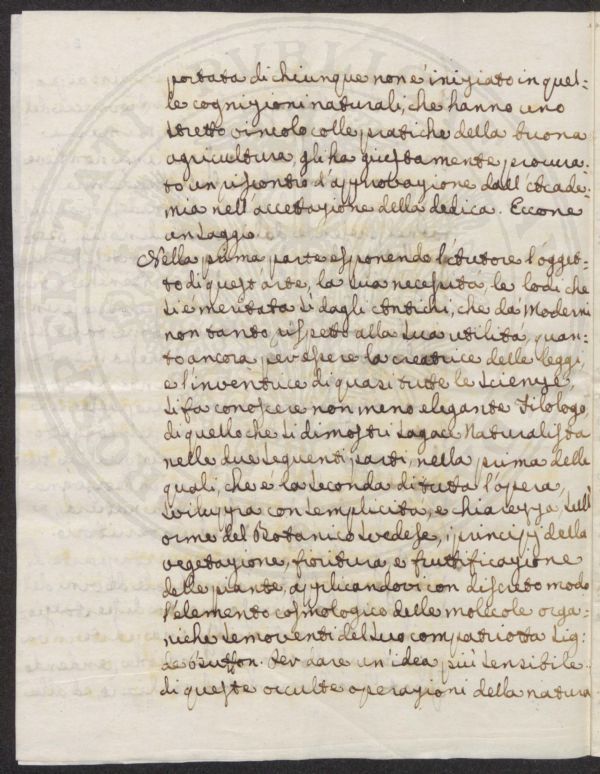 portata di chiunque non e' iniziato in quel=
le cognizioni naturali, che hanno uno
stretto vincolo colle pratiche della buona
agricultura, gli ha giustamente procura=
to un riscontro d'approvazione dall'Acade=
mia nell'accettazione della dedica. Eccone
un saggio
Nella prima parte esponendo l'Autore l'ogget=
to di quest'arte, la sua necessità, le lodi che
si è meritata sì dagli Antichi, che da' Moderni
non tanto rispetto alla sua utilità, quan=
to ancora per essere la creatrice delle leggi,
e l'inventrice di quasi tutte le scienze,
si fa conoscere non meno elegante Filologo,
di quello che si dimostri sagace Naturalista
nelle due seguenti parti, nella prima delle
quali, che e la seconda di tutta l'opera,
sviluppa con semplicità, e chiarezza, sull'
orme del Botanico svedese, i principj della
vegetazione, fioritura, e fruttificazione
delle piante, applicandovi con discreto modo
l'elemento cosmologico delle molecole orga=
niche semoventi del suo compatriotta Sig.
de Buffon. Per dare un'idea più sensibile
di queste occulte operazioni della natura
PROSPERITATI PUBLICAE